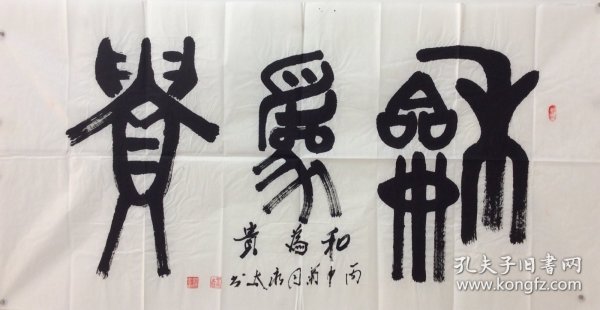 龢為貴
和為貴
丙申菊月
孔夫子旧书网
www.kongfz.com